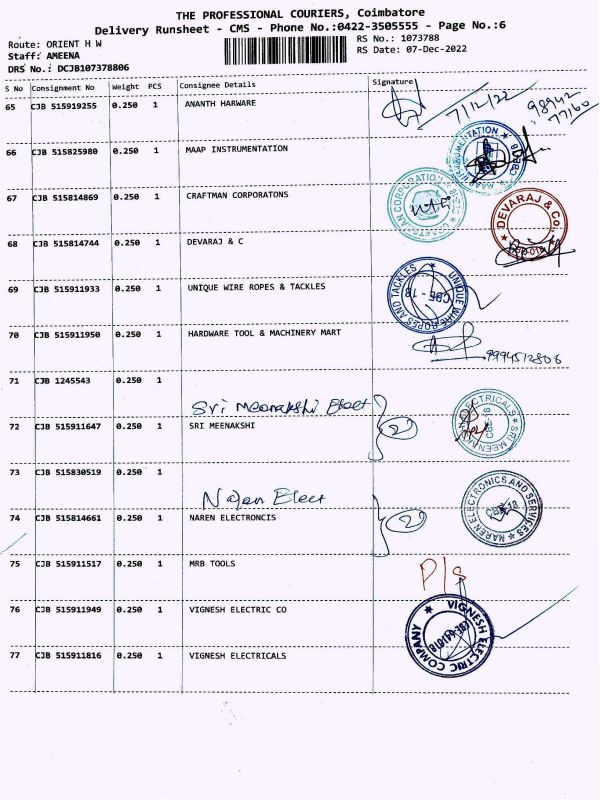 THE PROFESSIONAL COURIERS, Coimbatore
Delivery Runsheet - CMS - Phone No.:0422-3505555 - Page No.:6
Route: ORIENT H W
RS No.: 1073788
Staff: AMEENA
RS Date: 07-Dec-2022
DRS No.: DCJB107378806
S No Consignment No Weight PCS Consignee Details Signature
65 CJB 515919255 0.250 1 ANANTH HARWARE
7/12/22
98942
77160
66 CJB 515825980 0.250 1 MAAP INSTRUMENTATION
67 CJB 515814869 0.250 1 CRAFTMAN CORPORATONS
DEVARAJ & Co.
68 CJB 515814744 0.250 1 DEVARAJ & C
69 CJB 515911933 0.250 1 UNIQUE WIRE ROPES & TACKLES
UNIQUE WIRE ROPES AND TACKLES
CBE - 18
70 CJB 515911950 0.250 1 HARDWARE TOOL & MACHINERY MART
9994512806
71 CJB 1245543 0.250 1
Sri Meenakshi Elect
72 CJB 515911647 0.250 1 SRI MEENAKSHI
2
CBE-18
73 CJB 515830519 0.250 1
Naren Elect
NAREN ELECTRONICS AND SERVICES
CBE-18
74 CJB 515814661 0.250 1 NAREN ELECTRONCIS
2
75 CJB 515911517 0.250 1 MRB TOOLS
P/s
76 CJB 515911949 0.250 1 VIGNESH ELECTRIC CO
VIGNESH ELECTRIC COMPANY
77 CJB 515911816 0.250 1 VIGNESH ELECTRICALS